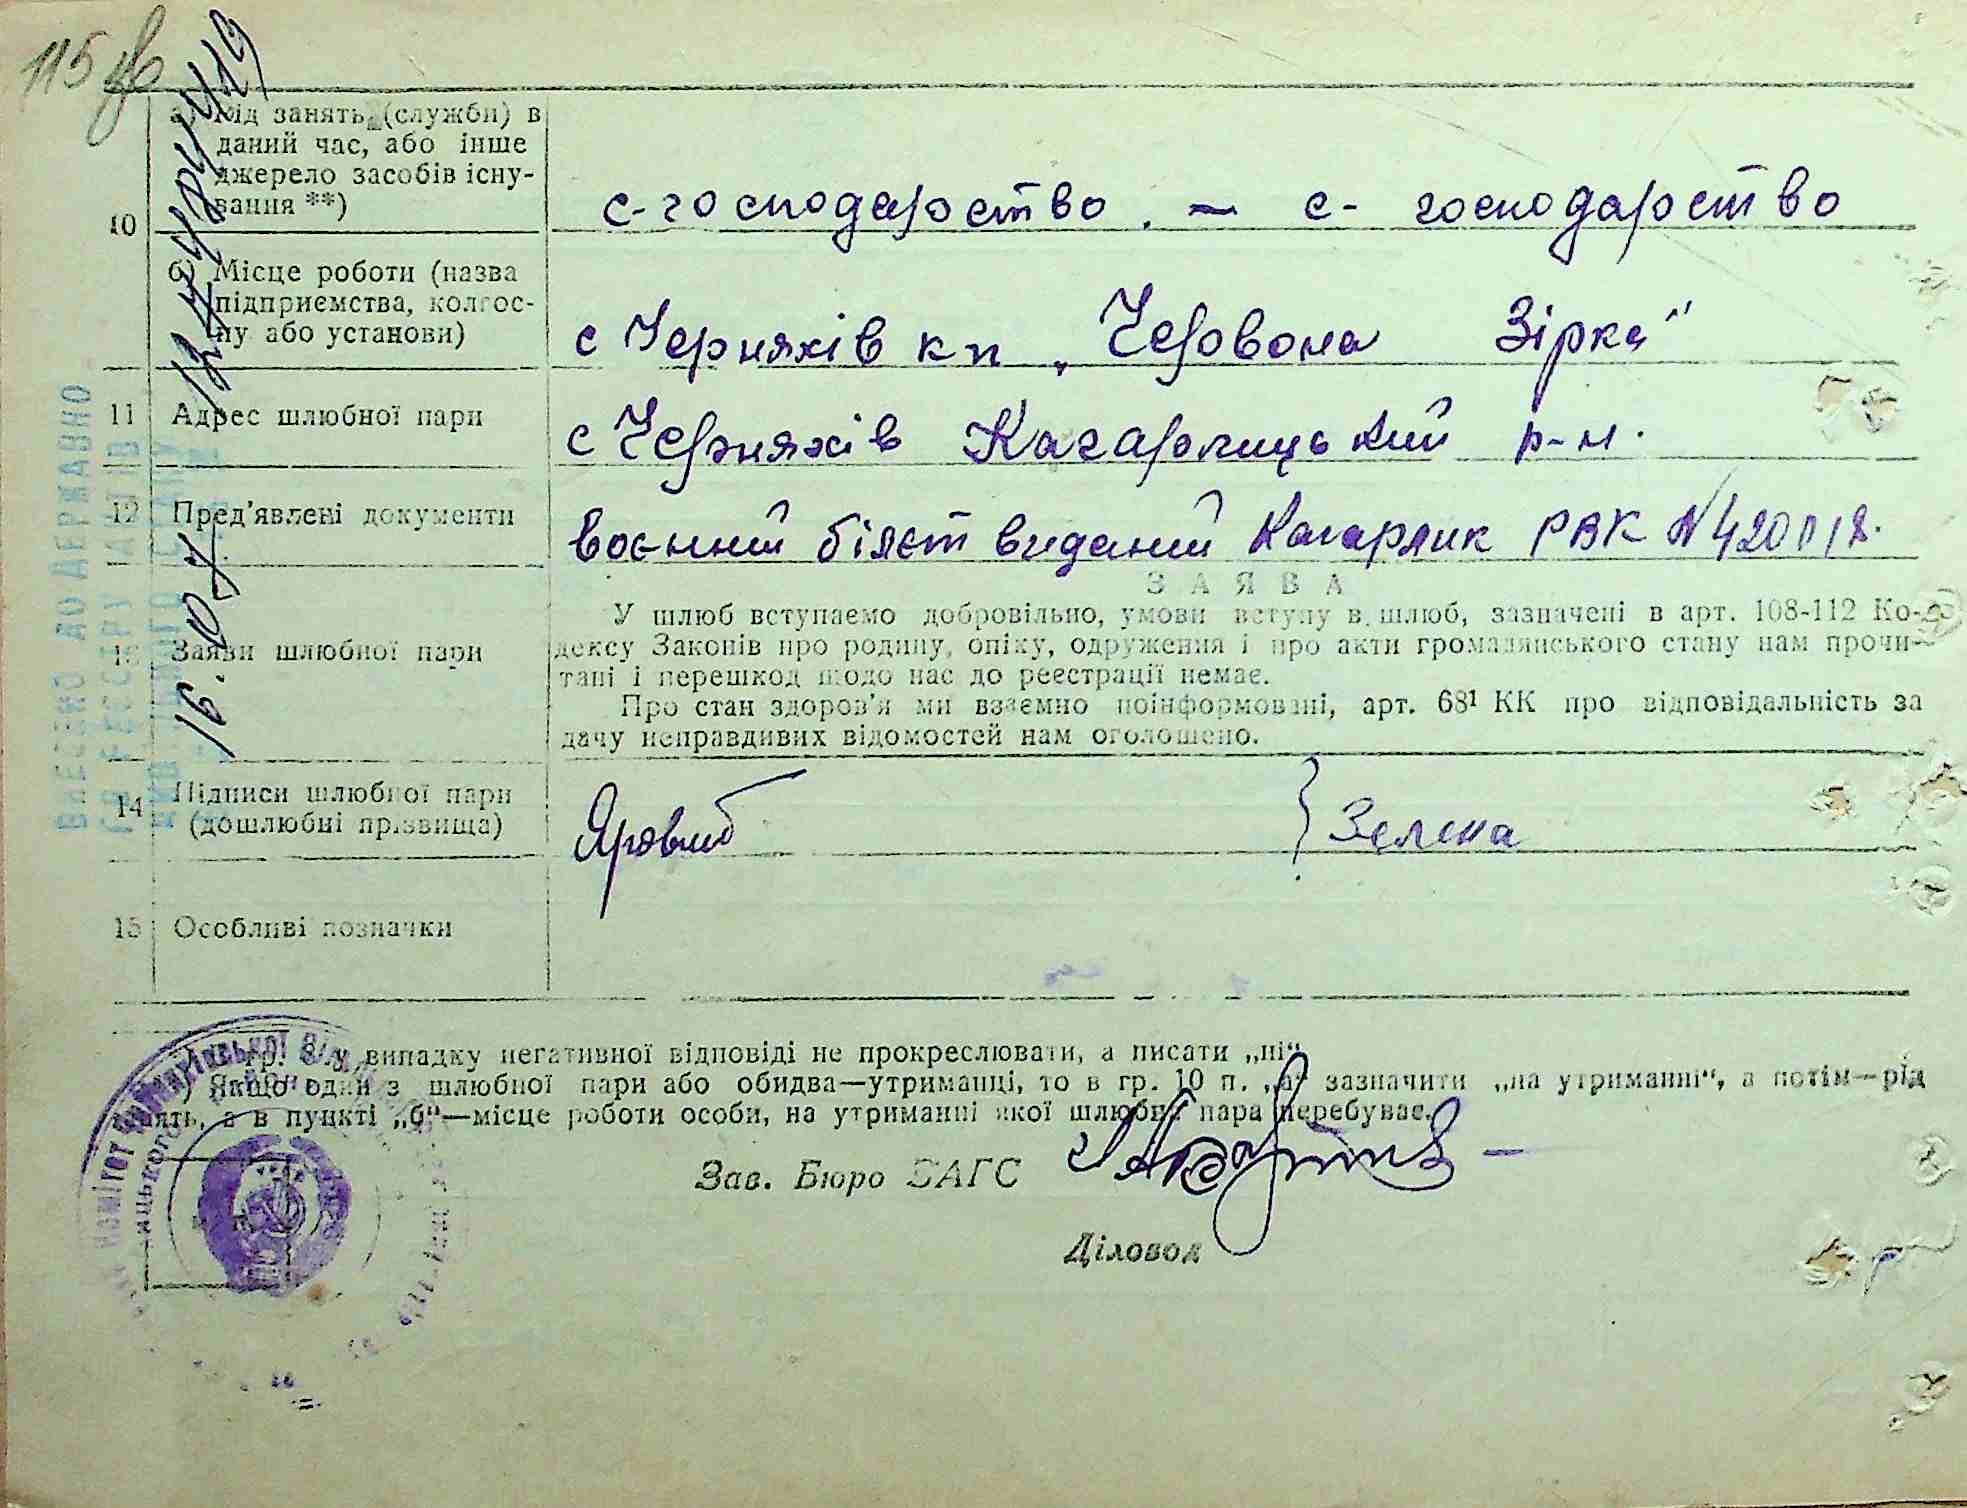 115 зв
а) Рід занять (служби) в
даний час, або інше
джерело засобів існу-
вання **)
10
с-господарство. — с- господарство
б) Місце роботи (назва
підприємства, колгос-
пу або установи)
с Черняхів кп „Червона Зірка"
11 Адрес шлюбної пари
с Черняхів Кагарлицький р-н.
12 Пред'явлені документи
воєнний білєт виданий Кагарлик РВК
13 Заяви шлюбної пари
ЗАЯВА
У шлюб вступаємо добровільно, умови вступу в шлюб, зазначені в арт. 108-112 Ко-
дексу Законів про родину, опіку, одруження і про акти громадянського стану нам прочи-
тані і перешкод щодо нас до реєстрації немає.
Про стан здоров'я ми взаємно поінформовані, арт. 68¹ КК про відповідальність за
дачу неправдивих відомостей нам оголошено.
14 Підписи шлюбної пари
(дошлюбні прізвища)
Яровий
Зелена
15 Особливі позначки
гр. 8 у випадку негативної відповіді не прокреслювати, а писати „ні"
Якщо один з шлюбної пари або обидва—утриманці, то в гр. 10 п. „а" зазначити „на утриманні", а потім—рід
занять, а в пункті „б"—місце роботи особи, на утриманні якої шлюбна пара перебуває.
Зав. Бюро ЗАГС
Діловод
ВНЕСЕНО ДО ДЕРЖАВНО